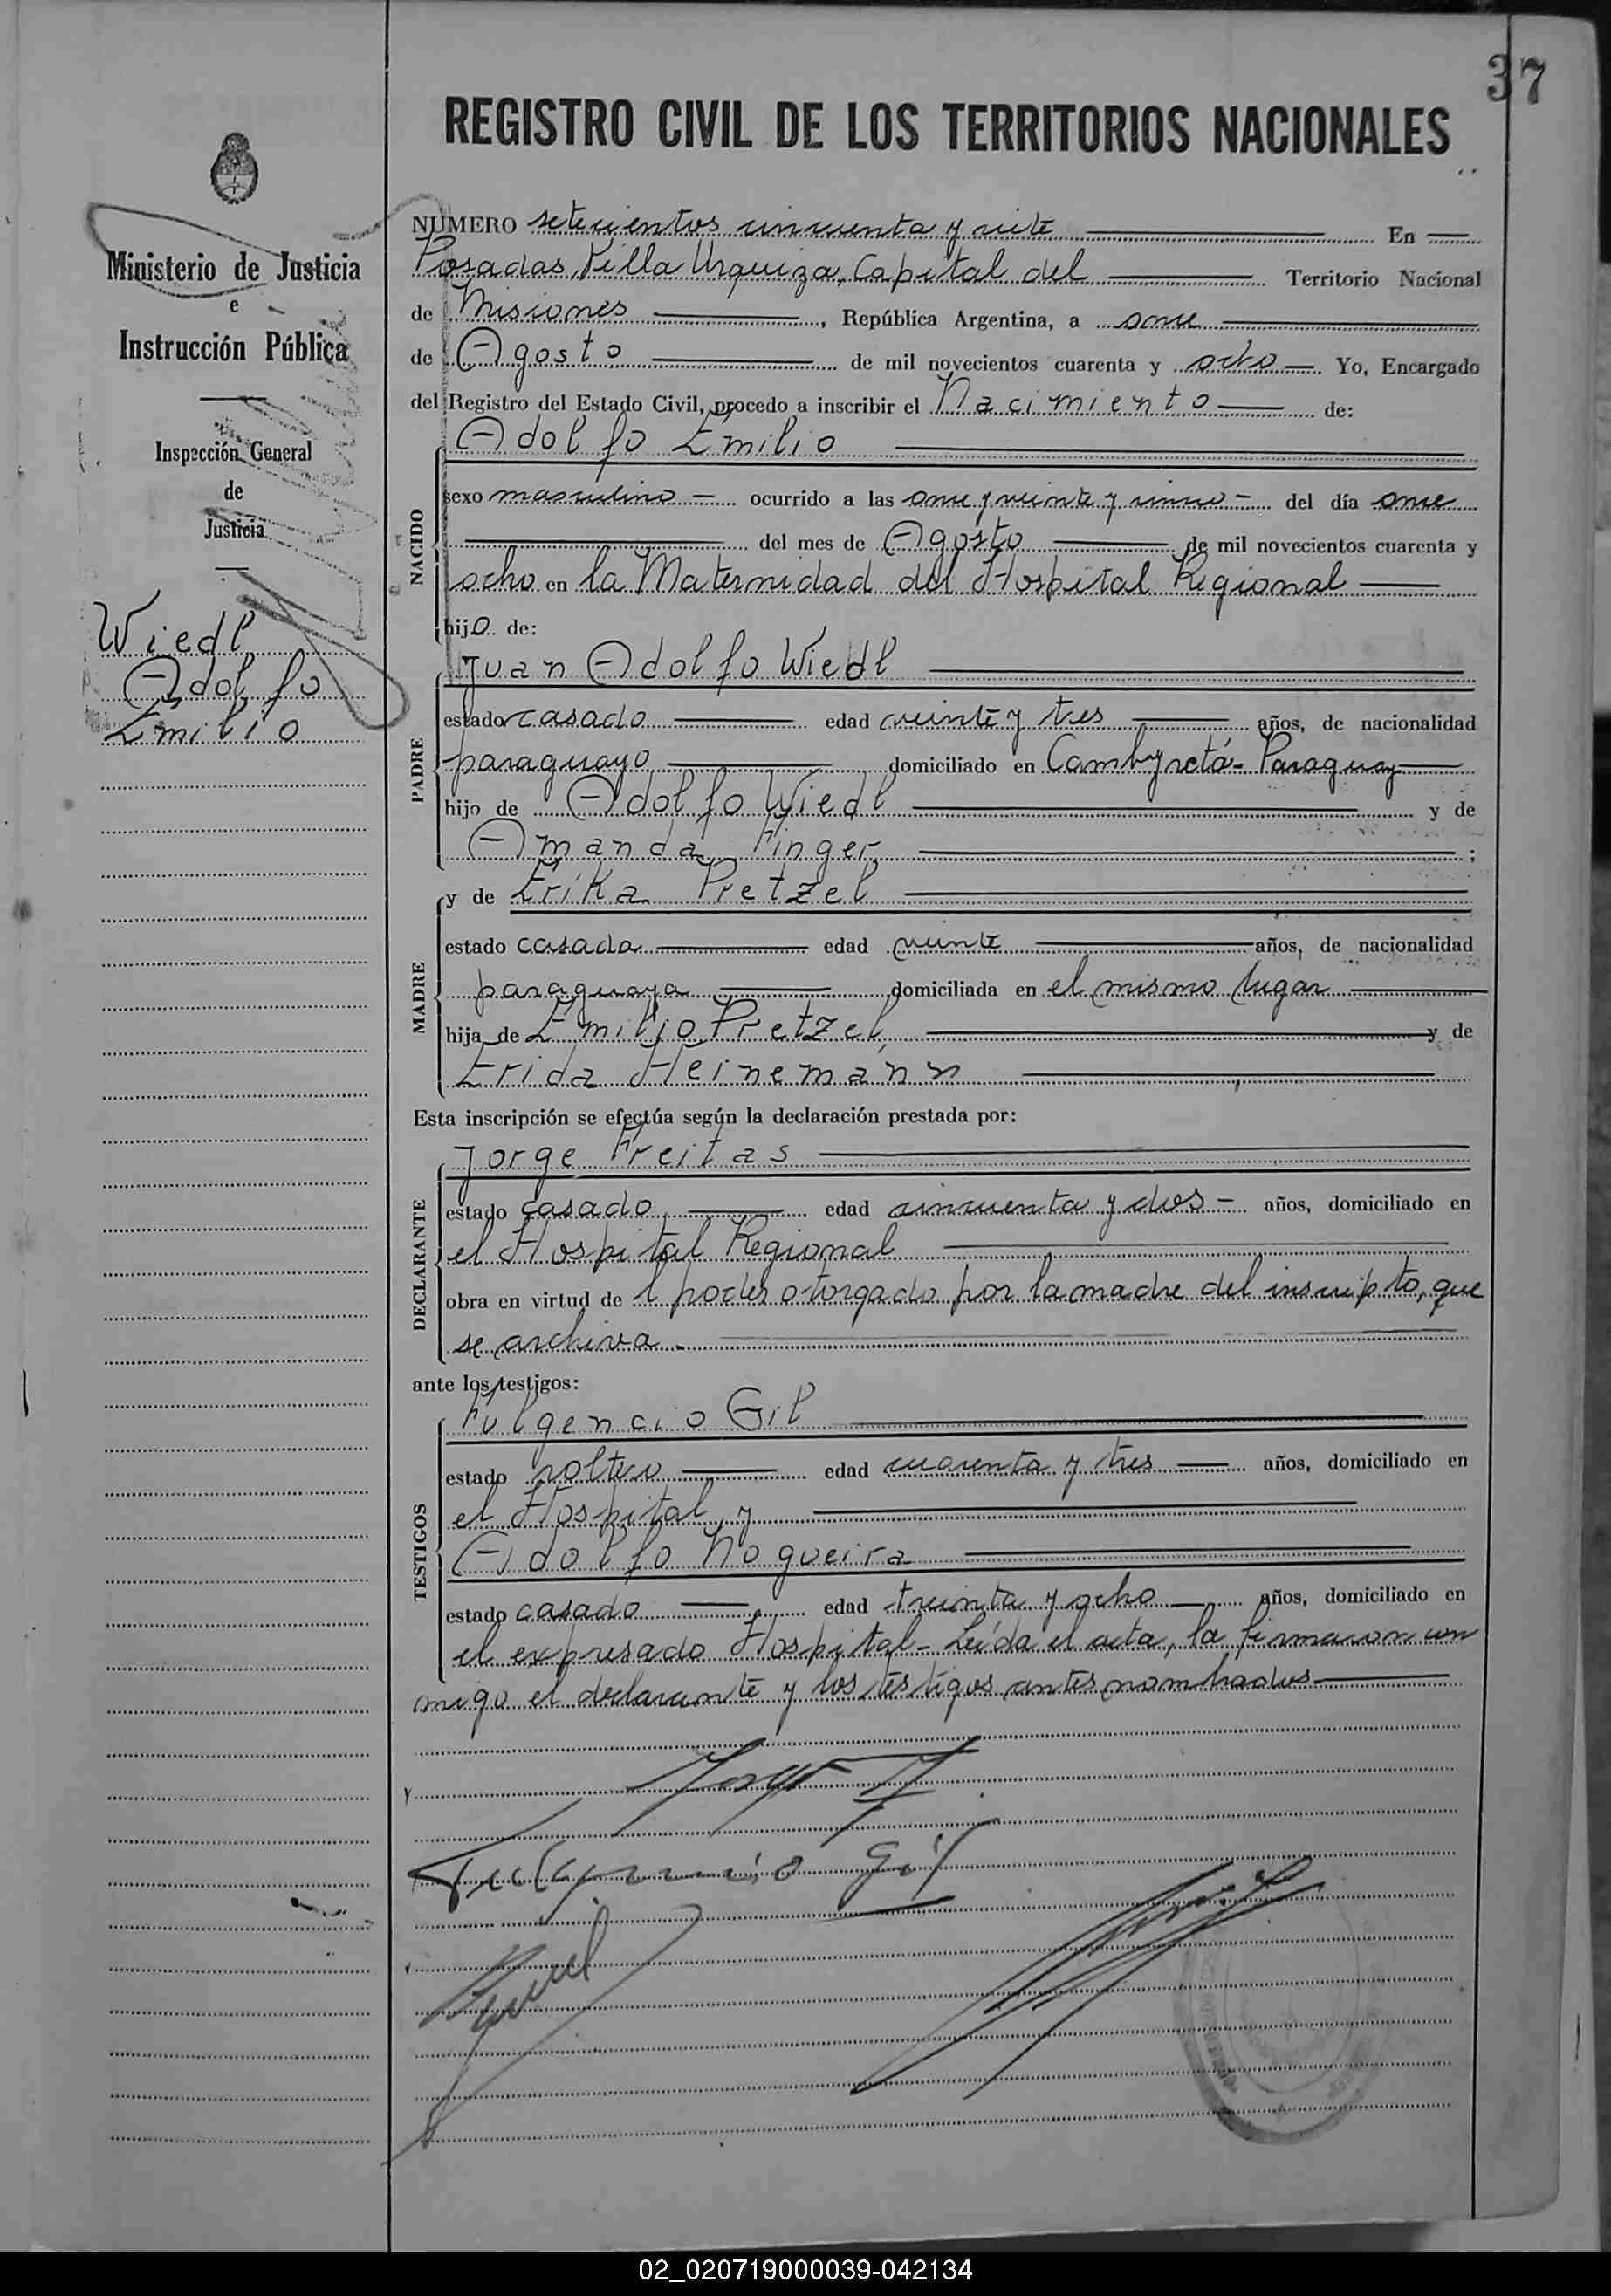 37
REGISTRO CIVIL DE LOS TERRITORIOS NACIONALES
Ministerio de Justicia
e
Instrucción Pública
Inspección General
de
Justicia
Wiedl
Adolfo
Emilio
NUMERO setecientos cincuenta y siete En
Posadas, Villa Urquiza, Capital del Territorio Nacional
de Misiones, República Argentina, a once
de Agosto de mil novecientos cuarenta y ocho Yo, Encargado
del Registro del Estado Civil, procedo a inscribir el Nacimiento de:
NACIDO
Adolfo Emilio
sexo masculino ocurrido a las once y veinte y cinco del día once
del mes de Agosto de mil novecientos cuarenta y
ocho en la Maternidad del Hospital Regional
hijo de:
PADRE
Juan Adolfo Wiedl
estado casado edad veinte y tres años, de nacionalidad
paraguayo domiciliado en Cambyretá - Paraguay
hijo de Adolfo Wiedl y de
Amanda Finger;
MADRE
y de Erika Pretzel
estado casada edad veinte años, de nacionalidad
paraguaya domiciliada en el mismo lugar
hija de Emilio Pretzel, y de
Erida Heinemann
Esta inscripción se efectúa según la declaración prestada por:
DECLARANTE
Jorge Freitas
estado casado edad cincuenta y dos años, domiciliado en
el Hospital Regional
obra en virtud de l poder otorgado por la madre del inscripto, que
se archiva.
ante los testigos:
TESTIGOS
Fulgencio Gil
estado soltero edad cuarenta y tres años, domiciliado en
el Hospital y
Adolfo Nogueira
estado casado edad treinta y ocho años, domiciliado en
el expresado Hospital - Leída el acta, la firmaron con
migo el declarante y los testigos antes nombrados
Fulgencio Gil
02_020719000039-042134